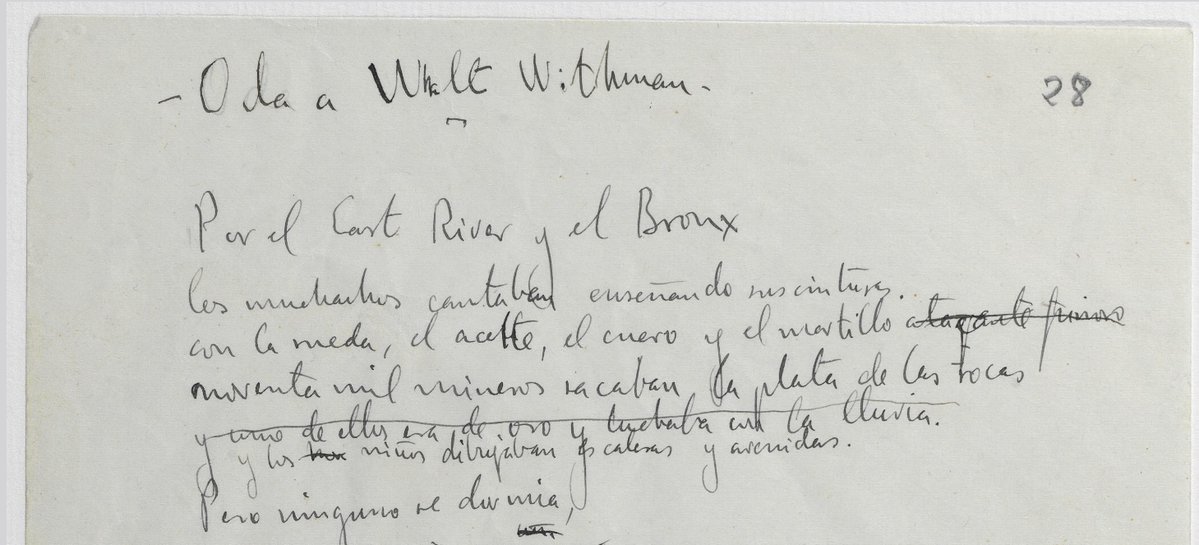 - Oda a Walt Withman -
28
Por el East River y el Bronx
los muchachos cantaban enseñando sus cinturas.
con la rueda, el aceite, el cuero y el martillo
noventa mil mineros sacaban la plata de las rocas
y uno de ellos era de oro y luchaba con la lluvia.
y los niños dibujaban escaleras y avenidas.
Pero ninguno se dormia,